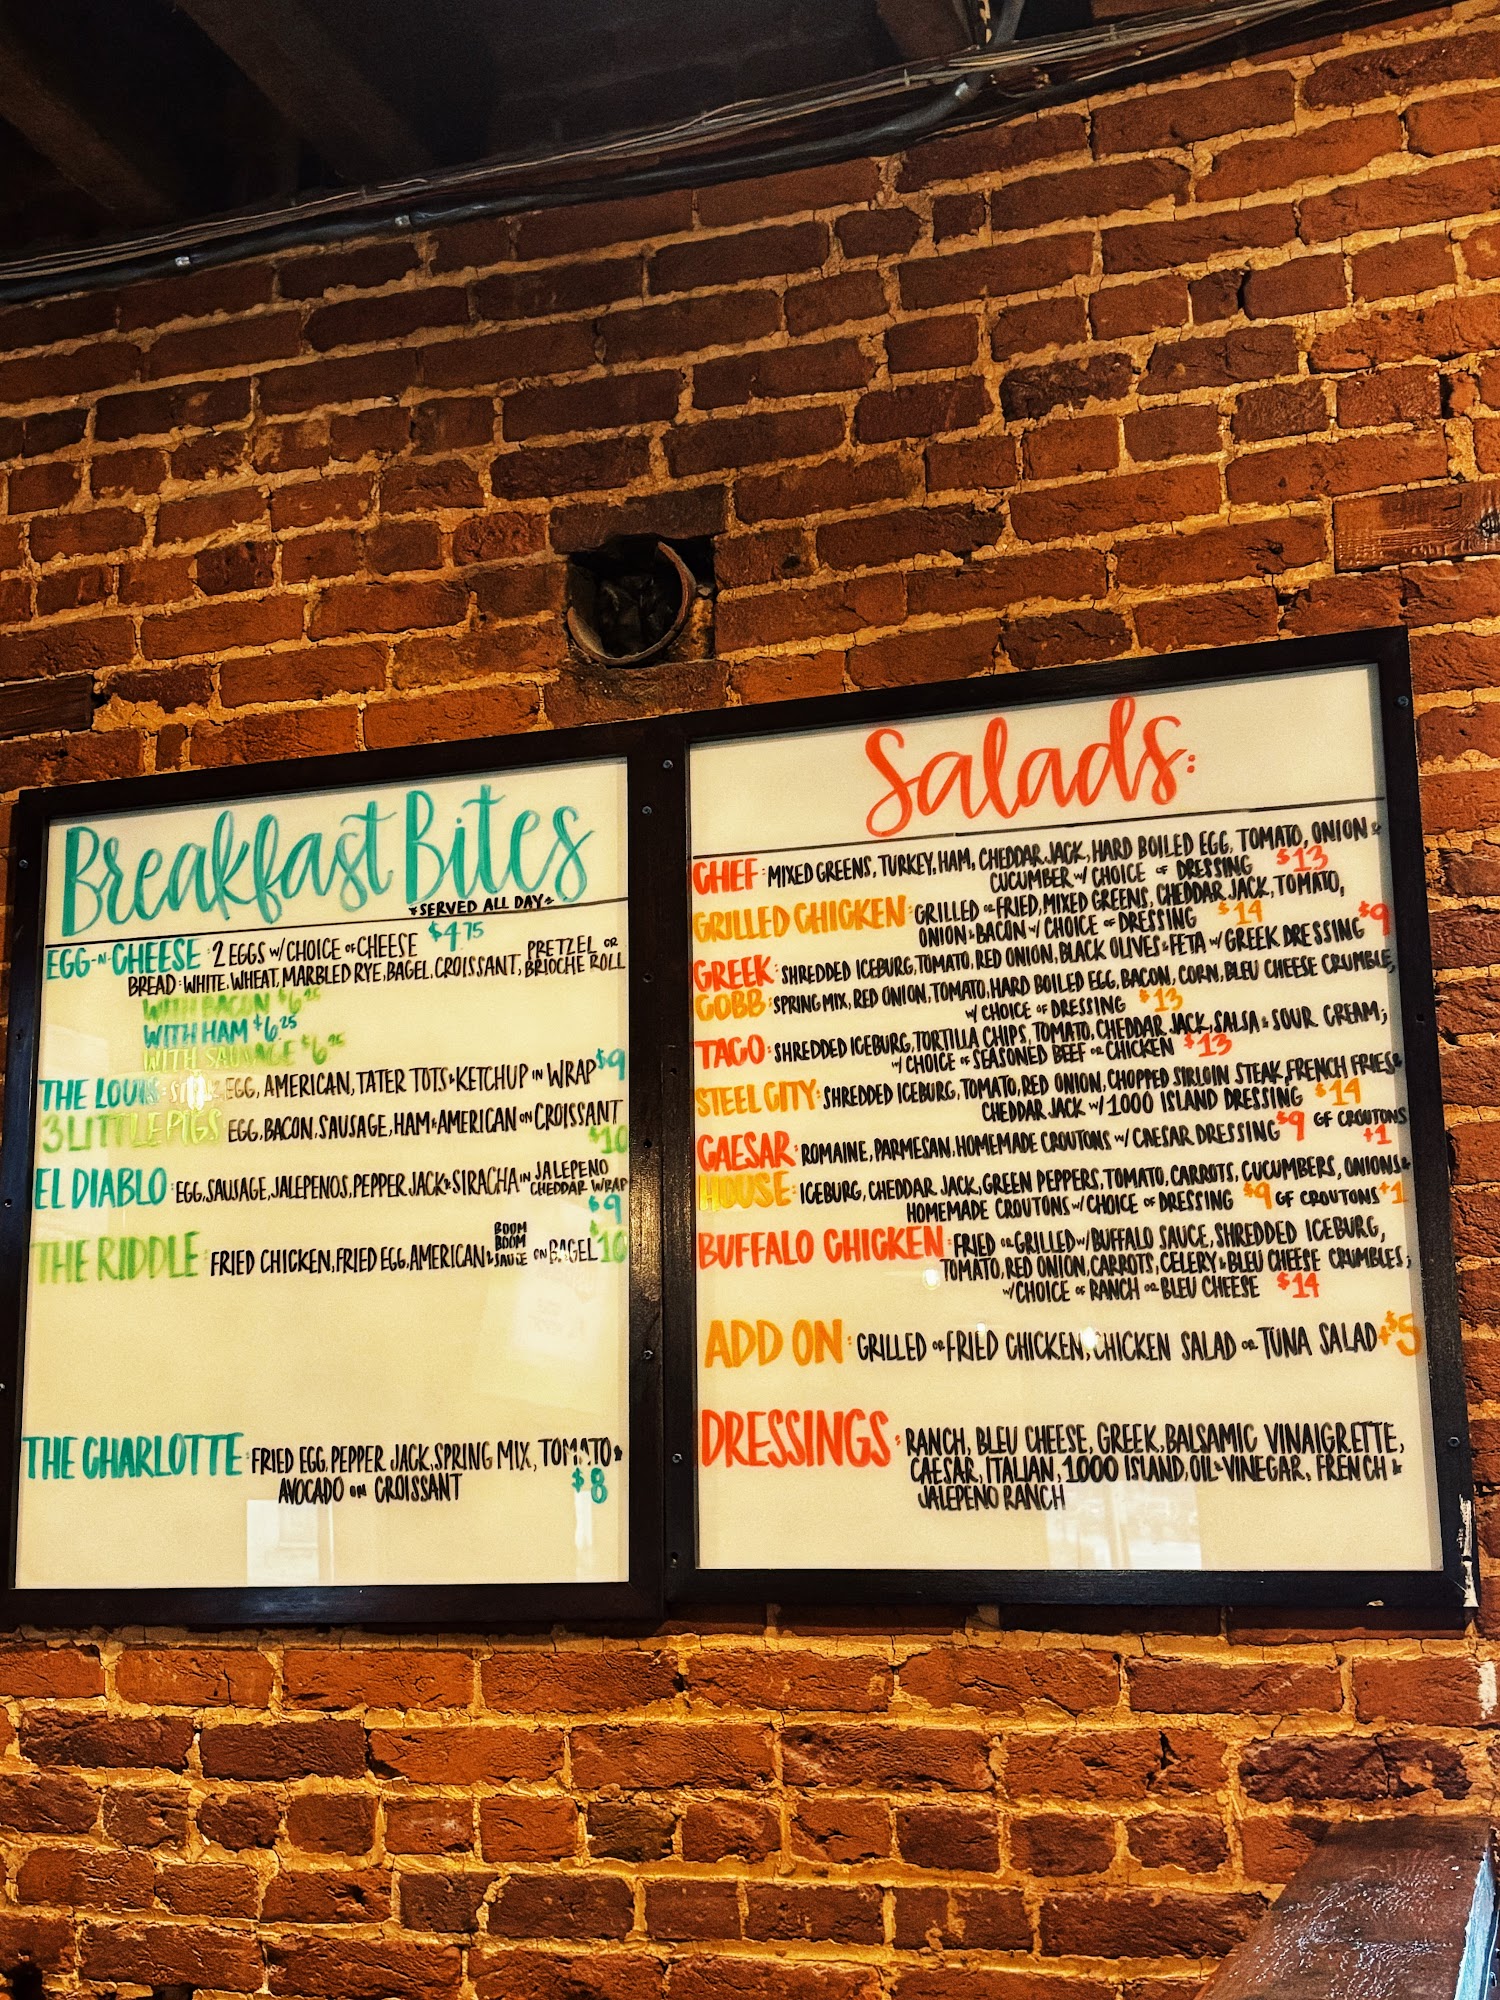 Breakfast Bites
*SERVED ALL DAY*
EGG-N-CHEESE: 2 EGGS W/ CHOICE OF CHEESE $4.75
BREAD: WHITE, WHEAT, MARBLED RYE, BAGEL, CROISSANT, PRETZEL OR BRIOCHE ROLL
WITH BACON $6.25
WITH HAM $6.25
WITH SAUSAGE $6.25
THE LOUIS: EGG, AMERICAN, TATER TOTS & KETCHUP IN WRAP $9
3 LITTLE PIGS EGG, BACON, SAUSAGE, HAM & AMERICAN ON CROISSANT
$10
EL DIABLO: EGG, SAUSAGE, JALEPENOS, PEPPER JACK & SIRACHA IN JALEPENO CHEDDAR WRAP
$9
THE RIDDLE: FRIED CHICKEN, FRIED EGG, AMERICAN & BOOM BOOM SAUCE ON BAGEL $10
THE CHARLOTTE: FRIED EGG, PEPPER JACK, SPRING MIX, TOMATO &
AVOCADO ON CROISSANT $8
Salads:
CHEF: MIXED GREENS, TURKEY, HAM, CHEDDAR JACK, HARD BOILED EGG, TOMATO, ONION &
CUCUMBER W/ CHOICE OF DRESSING $13
GRILLED CHICKEN: GRILLED OR FRIED, MIXED GREENS, CHEDDAR JACK, TOMATO,
ONION & BACON W/ CHOICE OF DRESSING $14
GREEK: SHREDDED ICEBURG, TOMATO, RED ONION, BLACK OLIVES & FETA W/ GREEK DRESSING $9
COBB: SPRING MIX, RED ONION, TOMATO, HARD BOILED EGG, BACON, CORN, BLEU CHEESE CRUMBLE,
W/ CHOICE OF DRESSING $13
TACO: SHREDDED ICEBURG, TORTILLA CHIPS, TOMATO, CHEDDAR JACK, SALSA & SOUR CREAM;
W/ CHOICE OF SEASONED BEEF OR CHICKEN $13
STEEL CITY: SHREDDED ICEBURG, TOMATO, RED ONION, CHOPPED SIRLOIN STEAK, FRENCH FRIES &
CHEDDAR JACK W/ 1000 ISLAND DRESSING $14
CAESAR: ROMAINE, PARMESAN, HOMEMADE CROUTONS W/ CAESAR DRESSING $9 GF CROUTONS +1
HOUSE: ICEBURG, CHEDDAR JACK, GREEN PEPPERS, TOMATO, CARROTS, CUCUMBERS, ONIONS &
HOMEMADE CROUTONS W/ CHOICE OF DRESSING $9 GF CROUTONS +1
BUFFALO CHICKEN: FRIED OR GRILLED W/ BUFFALO SAUCE, SHREDDED ICEBURG,
TOMATO, RED ONION, CARROTS, CELERY & BLEU CHEESE CRUMBLES;
W/ CHOICE OF RANCH OR BLEU CHEESE $14
ADD ON: GRILLED OR FRIED CHICKEN, CHICKEN SALAD OR TUNA SALAD +$5
DRESSINGS: RANCH, BLEU CHEESE, GREEK, BALSAMIC VINAIGRETTE,
CAESAR, ITALIAN, 1000 ISLAND, OIL & VINEGAR, FRENCH &
JALEPENO RANCH